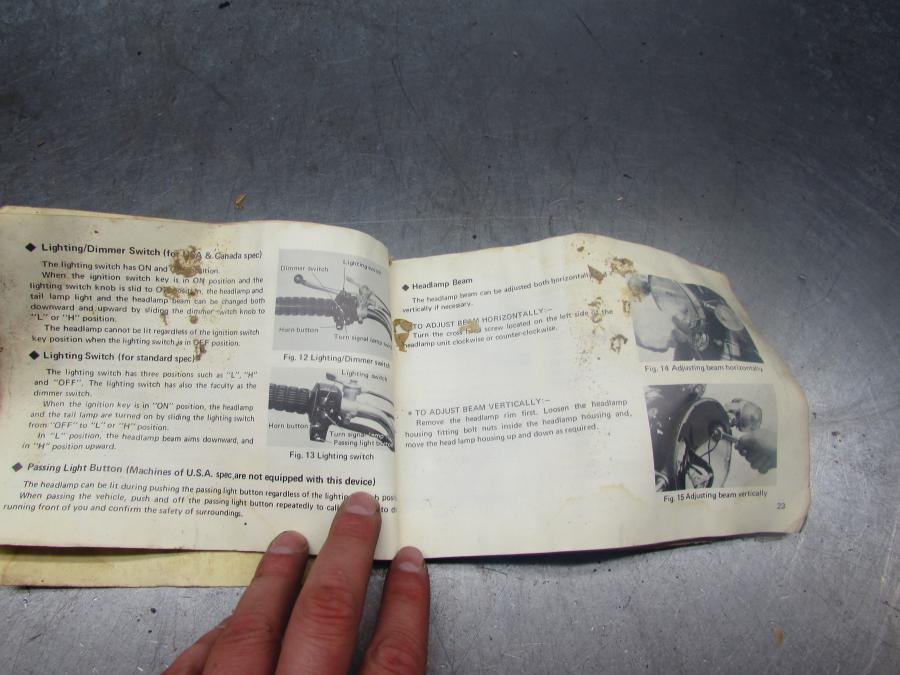 ◆ Lighting/Dimmer Switch (for USA & Canada spec)
The lighting switch has ON and position.
When the ignition switch key is in ON position and the
lighting switch knob is slid to position, the headlamp and
tail lamp light and the headlamp beam can be changed both
downward and upward by sliding the dimmer switch knob to
"L" or "H" position.
The headlamp cannot be lit regardless of the ignition switch
key position when the lighting switch is in OFF position.
◆ Lighting Switch (for standard spec)
The lighting switch has three positions such as "L", "H"
and "OFF". The lighting switch has also the faculty as the
dimmer switch.
When the ignition key is in "ON" position, the headlamp
and the tail lamp are turned on by sliding the lighting switch
from "OFF" to "L" or "H" position.
In "L" position, the headlamp beam aims downward, and
in "H" position upward.
Dimmer switch
Lighting switch
Horn button
Turn signal lamp switch
Fig. 12 Lighting/Dimmer switch
Lighting switch
Horn button
Turn signal
Passing light button
Fig. 13 Lighting switch
◆ Passing Light Button (Machines of U.S.A. spec are not equipped with this device)
The headlamp can be lit during pushing the passing light button regardless of the lighting
When passing the vehicle, push and off the passing light button repeatedly to call to
running front of you and confirm the safety of surroundings.
◆ Headlamp Beam
The headlamp beam can be adjusted both horizontally
vertically if necessary.
TO ADJUST BEAM HORIZONTALLY:–
Turn the cross screw located on the left side of the
headlamp unit clockwise or counter-clockwise.
* TO ADJUST BEAM VERTICALLY:–
Remove the headlamp rim first. Loosen the headlamp
housing fitting bolt nuts inside the headlamp housing and,
move the head lamp housing up and down as required.
Fig. 14 Adjusting beam horizontally
Fig. 15 Adjusting beam vertically
23